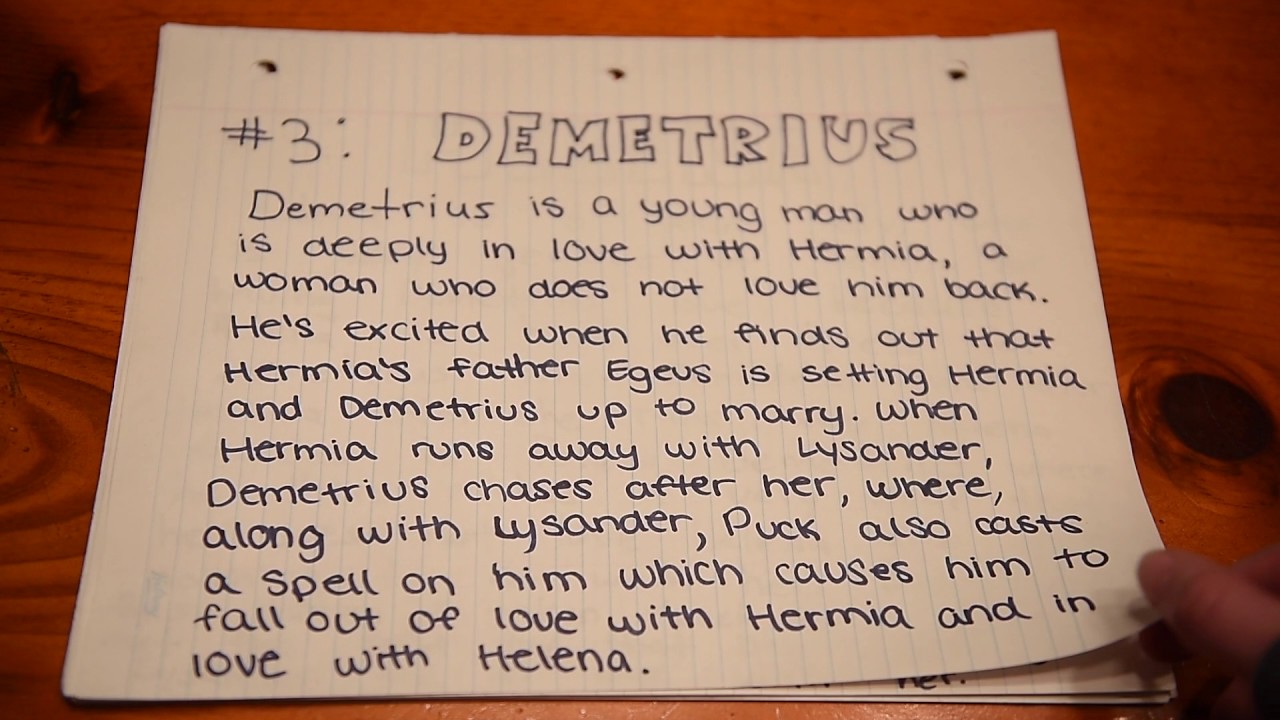 #3: DEMETRIUS
Demetrius is a young man who
is deeply in love with Hermia, a
woman who does not love him back.
He's excited when he finds out that
Hermia's father Egeus is setting Hermia
and Demetrius up to marry. When
Hermia runs away with Lysander,
Demetrius chases after her, where,
along with Lysander, Puck also casts
a spell on him which causes him to
fall out of love with Hermia and in
love with Helena.
her.